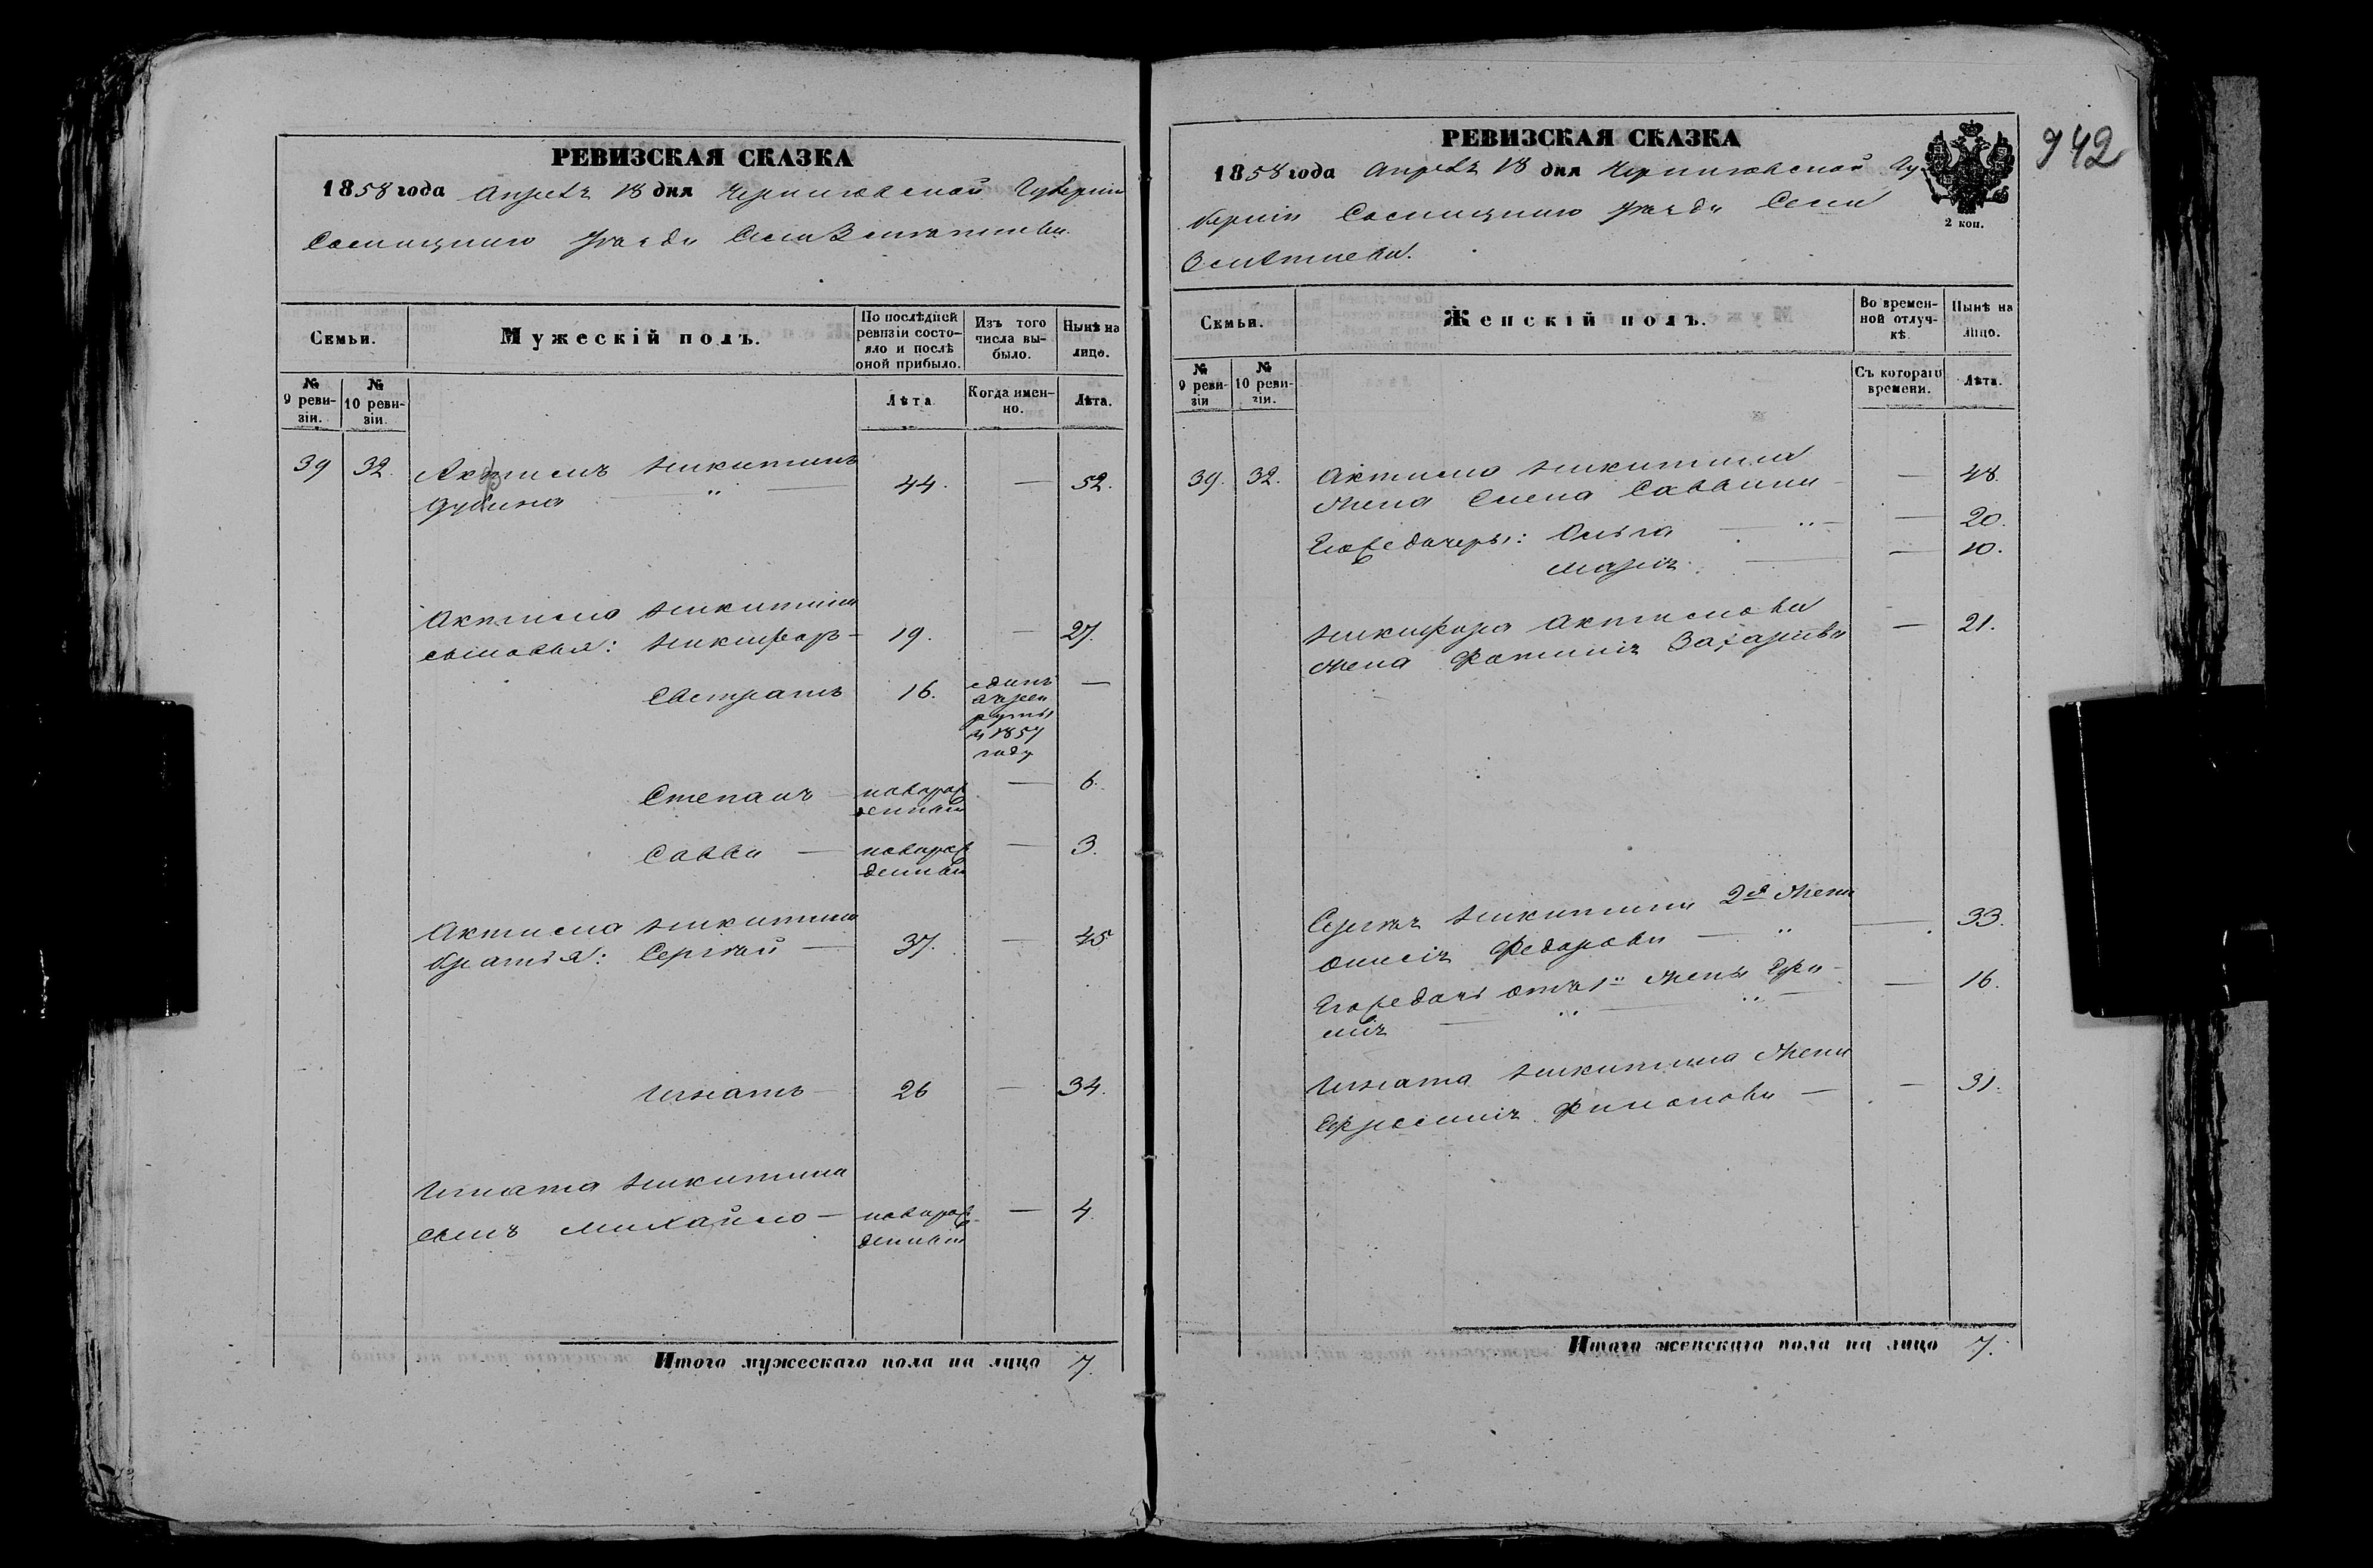 РЕВИЗСКАЯ СКАЗКА
1858 года Апреля 18 дня Черниговской Губерніи
Сосницкаго уезда Села
Семьи.
Мужескій полъ.
По послѣдней ревизіи состояло и послѣ оной прибыло.
Изъ того числа выбыло.
Нынѣ на лицо.
№ 9 ревизіи.
№ 10 ревизіи.
Лѣта
Когда именно.
Лѣта.
39 32. Никитинъ 44. — 52.
Никитина
сыновья: Никифоръ — 19. — 27.
Евстратъ 16. —
1857
году
Степанъ — новорож 6.
денный
Савва — новорож — 3.
денный
Никитина
братья: Сергѣй — 37. — 45
Игнатъ — 26 — 34.
Игната Никитина
сынъ Михайло — новорож — 4.
денный
Итого мужескаго пола на лицо 7.
942
РЕВИЗСКАЯ СКАЗКА
1858 года Апреля 18 дня Черниговской Гу-
берніи Сосницкаго уезда Села
2 коп.
Семьи.
Женскій полъ.
Во временной отлучкѣ
Нынѣ на лицо.
№ 9 ревизіи
№ 10 ревизіи.
Съ котораго времени.
Лѣта.
39. 32. Никитина
жена Елена Саввина — 48.
Его же дочеры: Ольга — 20.
Марія — 10.
Никифора
жена Фотинія Захаріева — 21.
Сергѣя Никитина 2я жена
Онисія Федорова — 33.
Его же дочь отъ 1й жены — 16.
Игната Никитина жена
Ефросинія — 31.
Итого женскаго пола на лицо 7.